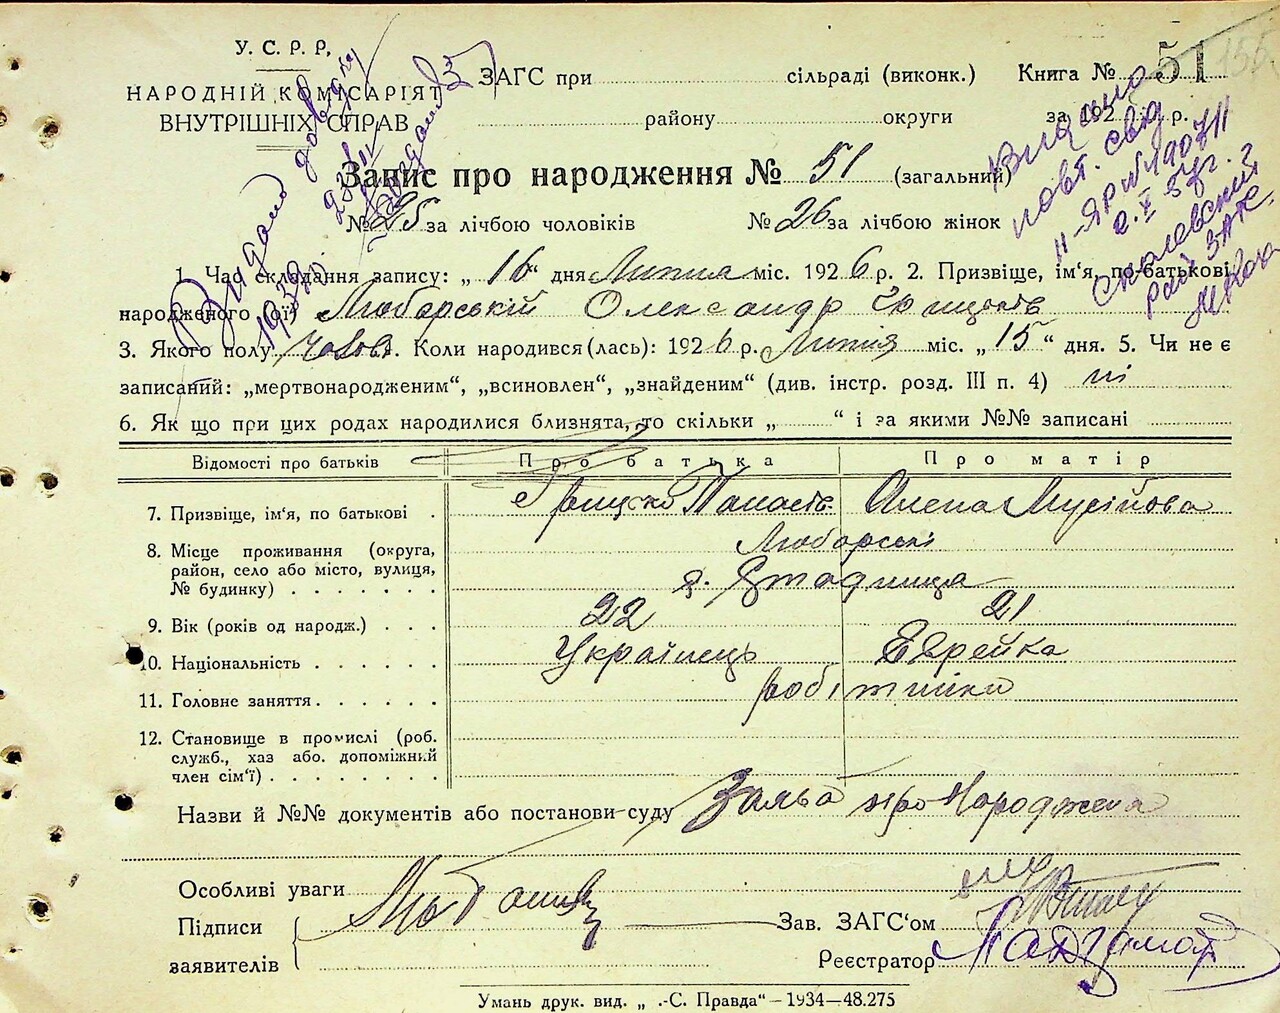 У. С. Р. Р.
НАРОДНІЙ КОМІСАРІЯТ
ВНУТРІШНІХ СПРАВ
ЗАГС при сільраді (виконк.) Книга № 51
району округи за 192 р.
Запис про народження № 51 (загальний)
№ 25 за лічбою чоловіків № 26 за лічбою жінок
Видано довідку
1939
Видано
повт. свід
1. Час складання запису: „ 16 “ дня Липня міс. 1926 р. 2. Призвіще, ім'я, по-батькові
народженого (ої) Люборський Олександр Грицьків
3. Якого полу чолов. Коли народився (лась): 1926 р. Липня міс. „ 15 “ дня. 5. Чи не є
записаний: „мертвонародженим“, „всиновлен“, „знайденим“ (див. інстр. розд. III п. 4) ні
6. Як що при цих родах народилися близнята, то скільки „ “ і за якими №№ записані
Відомості про батьків Про батька Про матір
7. Призвіще, ім'я, по батькові Грицько Панасів Алена Мусійова
Люборські
8. Місце проживання (округа,
район, село або місто, вулиця,
№ будинку)
9. Вік (років од народж.) 22 21
10. Національність Українець Єврейка
11. Головне заняття робітники
12. Становище в промислі (роб.
служб., хаз або. допоміжний
член сім'ї)
Назви й №№ документів або постанови суду Заява про Народження
Особливі уваги
Підписи
заявителів
Зав. ЗАГС'ом
Реєстратор
Умань друк. вид. „ .-С. Правда“ – 1934—48.275